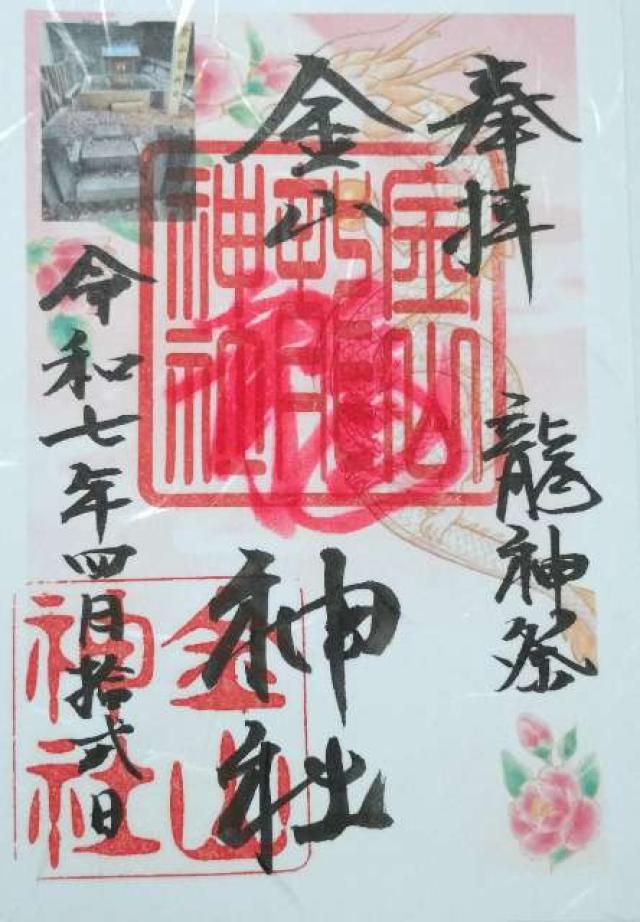 奉拝
龍神祭
金山
神社
令和七年四月拾弐日
金山
神社